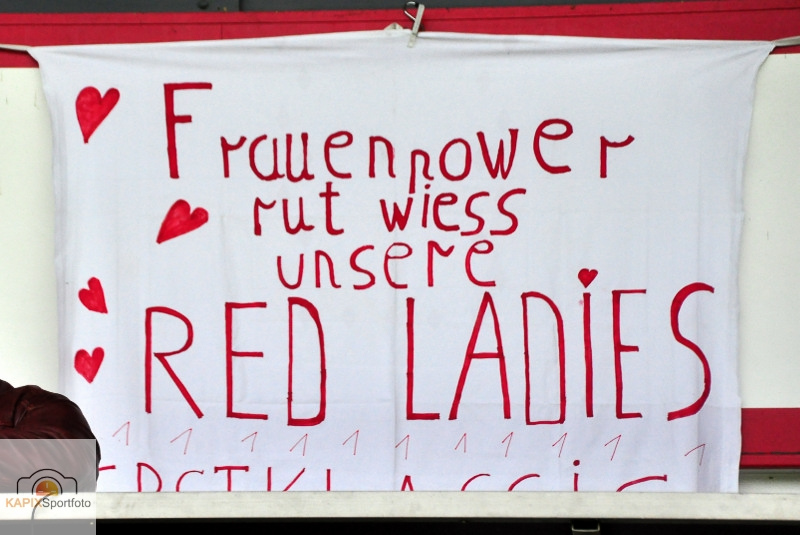 Frauenpower
rut wiess
unsere
RED LADiES
1 1 1 1 1 1 1 1 1 1 1
ERSTKLASSiG
KAPIXSportfoto